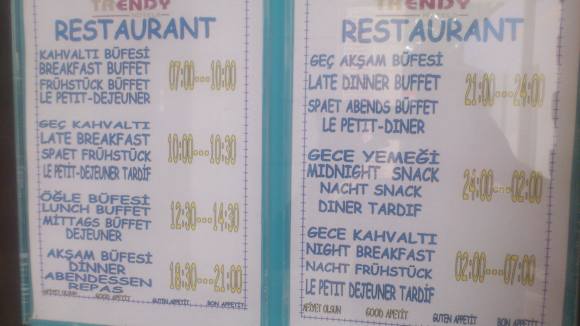 TRENDY
RESTAURANT
KAHVALTI BÜFESİ
BREAKFAST BUFFET
FRÜHSTÜCK BÜFFET
LE PETIT-DEJEUNER
07:00---10:00
GEÇ KAHVALTI
LATE BREAKFAST
SPAET FRÜHSTÜCK
LE PETİT-DEJEUNER TARDİF
10:00---10:30
ÖĞLE BÜFESİ
LUNCH BUFFET
MİTTAGS BÜFFET
DEJEUNER
12:30---14:30
AKŞAM BÜFESİ
DİNNER
ABENDESSEN
REPAS
18:30---21:00
AFİYET OLSUN GOOD APPETİT GUTEN APPETİT BON APPETİT
TRENDY
RESTAURANT
GEÇ AKŞAM BÜFESİ
LATE DINNER BUFFET
SPAET ABENDS BÜFFET
LE PETIT-DINER
21:00---24:00
GECE YEMEĞİ
MIDNIGHT SNACK
NACHT SNACK
DINER TARDİF
24:00---02:00
GECE KAHVALTI
NIGHT BREAKFAST
NACHT FRÜHSTÜCK
LE PETIT DEJEUNER TARDİF
02:00---07:00
AFİYET OLSUN GOOD APPETİT GUTEN APPETİT BON APPETİT